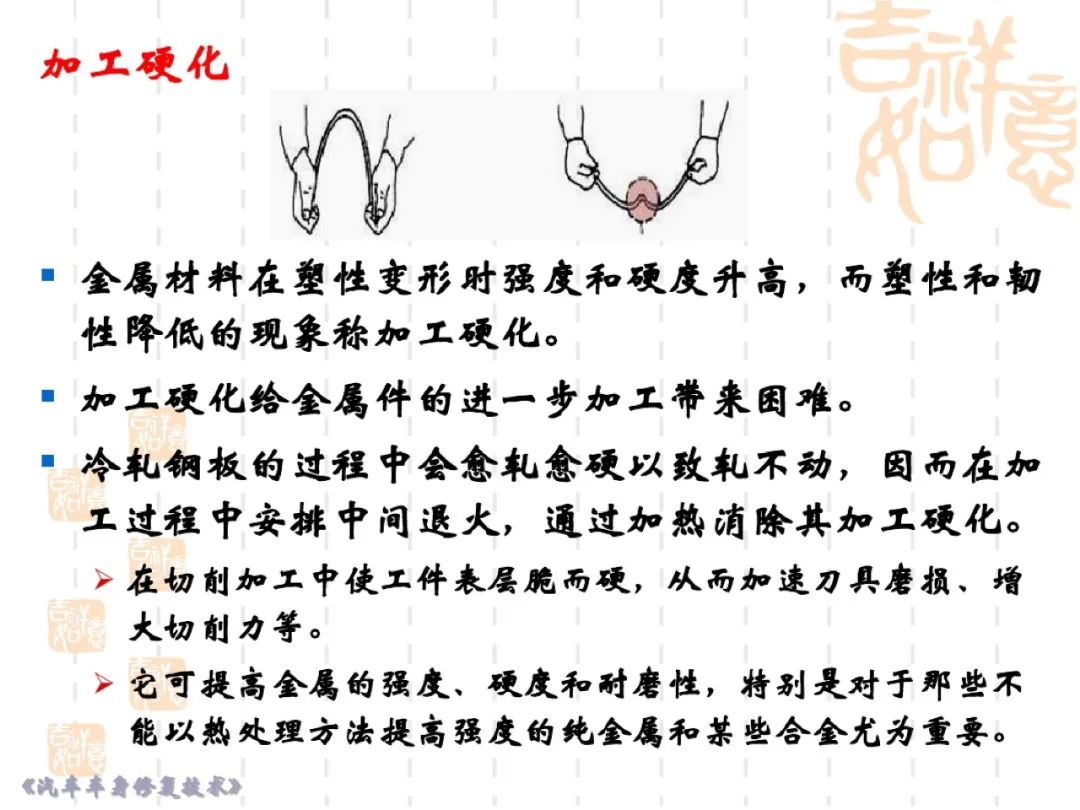 吉祥如意
加工硬化
金属材料在塑性变形时强度和硬度升高，而塑性和韧
性降低的现象称加工硬化。
加工硬化给金属件的进一步加工带来困难。
冷轧钢板的过程中会愈轧愈硬以致轧不动，因而在加
工过程中安排中间退火，通过加热消除其加工硬化。
在切削加工中使工件表层脆而硬，从而加速刀具磨损、增
大切削力等。
它可提高金属的强度、硬度和耐磨性，特别是对于那些不
能以热处理方法提高强度的纯金属和某些合金尤为重要。
《汽车车身修复技术》